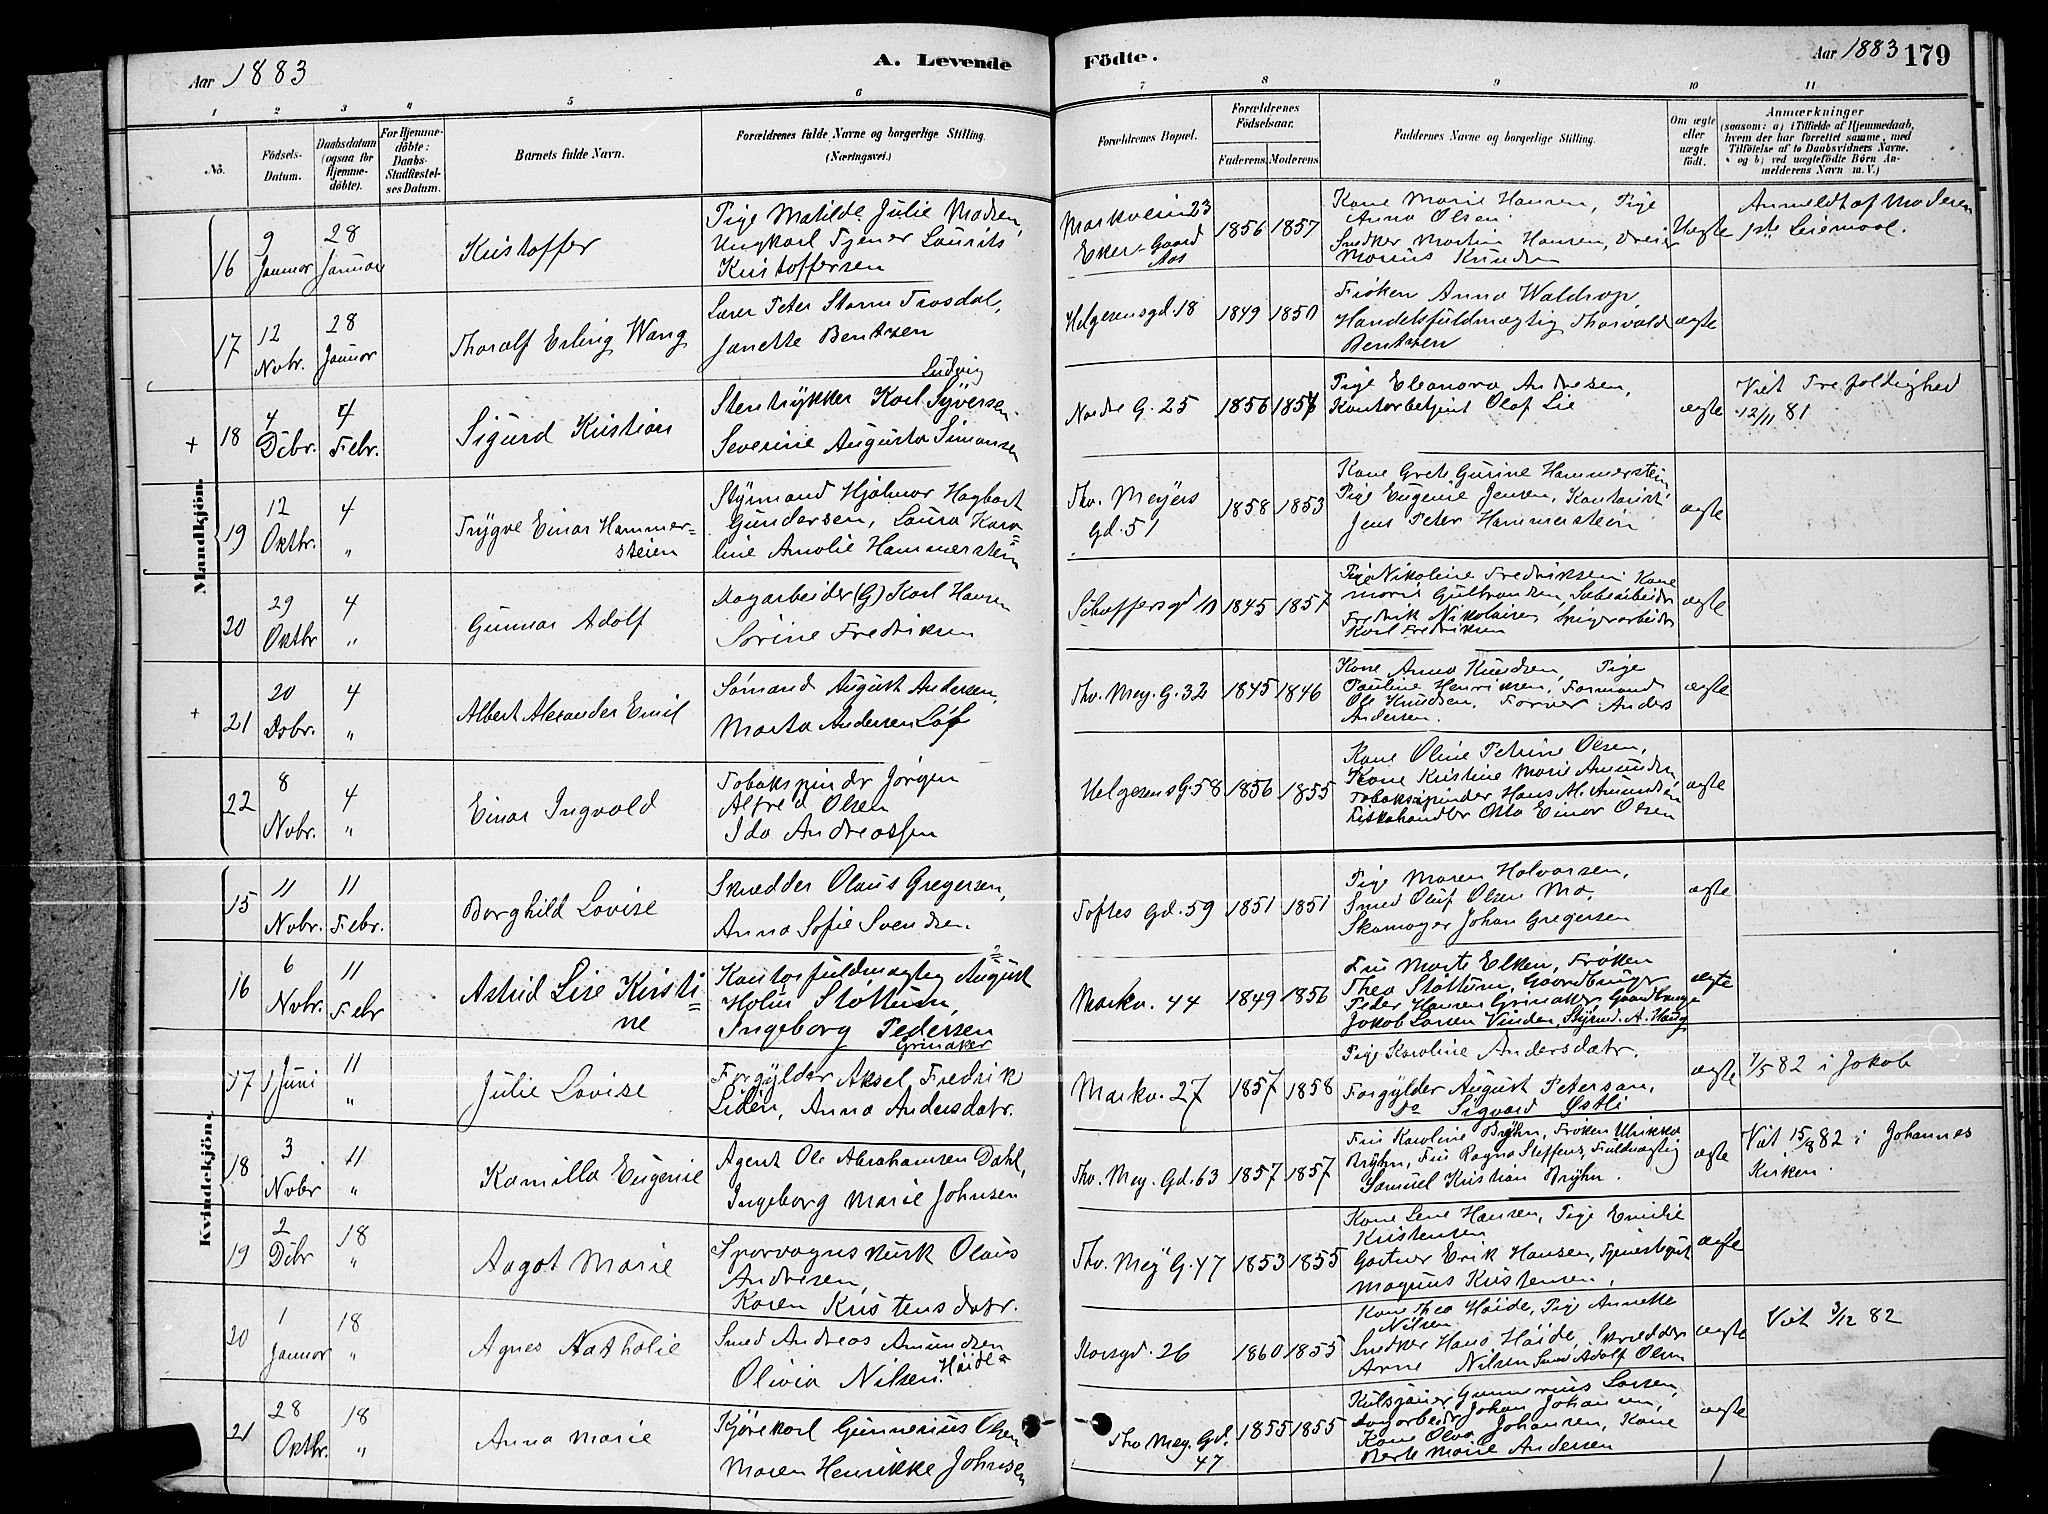 Aar 1883
A. Levende
Födte.
Aar 1883
179
1 2 3 4 5 6 7 8 9 10 11
No.
Födsels-
Datum.
Daabsdatum
(ogsaa for
Hjemme-
döbte).
For Hjemme-
döbte:
Daabs-
Stadfæstel-
ses Datum.
Barnets fulde Navn.
Forældrenes fulde Navne og borgerlige Stilling.
(Næringsvei.)
Forældrenes Bopæl.
Forældrenes
Födselsaar.
Faderens. Moderens.
Faddernes Navne og borgerlige Stilling.
Om ægte
eller
uægte
födt.
Anmærkninger
(saasom: a) i Tilfælde af Hjemmedaab,
hvem der har forrettet samme, med
Tilföielse af to Daabsvidners Navne.
og b) ved uægtefödte Börn An-
melderens Navn m. V.)
Mandkjön.
16
9
Januar
28
Januar
Kristoffer
Pige Matilde Julie Madsen,
Ungkarl Tjener Laurits
Kristoffersen
Markveien 23
Eker - Gaard
Aas
1856 1857
Kone Marie Hansen, Pige
Anna Olsen
Snedker Martin Hansen, Dreier
Marius Knudsen
Uægte
Anmeldt af Moderen
1ste Leiemaal.
17
12
Novbr.
28
Januar
Thoralf Erling Wang
Lærer Peter Storm Trosdal,
Janette Bentzen
Helgesens gd. 18
1849 1850
Frøken Anna Waldrop,
Handelsfuldmægtig Thorvald
Bentzen
ægte
+ 18
4
Dcbr.
4
Febr.
Sigurd Kristian
Ludvig
Stentrykker Karl Syversen
Severine Augusta Simonsen
Nordre G. 25
1856 1856
Pige Eleonora Andresen,
Kontorbetjent Olaf Lie
ægte
Viet Trefoldighed
12/11 81
19
12
Oktbr.
4
"
Trygve Einar Hammer-
steien
Styrmand Hjalmar Hagbart
Gundersen, Laura Karo
line Amalie Hammerstein
Thv. Meyers
gd. 51
1858 1853
Kone Grete Gurine Hammerstein
Pige Eugenie Jensen, Kontorist
Jens Peter Hammerstein
ægte
20
29
Oktbr
4
"
Gunnar Adolf
Dagarbeider (G) Karl Hansen
Sørine Fredriksen
Schoffers gd 10
1845 1857
Pige Nikoline Fredriksen Kone
Marie Gulbrandsen,
Fredrik Nikolaisen, Spigerarbeider
Karl Fredriksen
ægte
+ 21
20
Dcbr.
4
"
Albert Alexander Emil
Sømand August Andersen,
Marta Andersen Løf
Thv. Mey. G. 32
1845 1846
Kone Anna Knudsen, Pige
Pauline Henriksen, Formand
Ole Knudsen, Farver Anders
Andersen.
ægte
22
8
Novbr.
4
"
Einar Ingvald
Tobakspinder Jørgen
Alfred Olsen
Ida Andreassen
Helgesens G. 58
1856 1855
Kone Oline Petrine Olsen,
Kone Kristine Marie Amundsen,
Tobakspinder Hans M. Amundsen
Fiskehandler Otto Einar Olsen
ægte
Kvindekjön.
15
11
Novbr.
11
Febr.
Borghild Lovise
Skredder Olaus Gregersen,
Anna Sofie Svendsen.
Toftes Gd. 59
1851 1851
Pige Maren Halvorsen,
Smed Oluf Olsen Mo,
Skomager Johan Gregersen
ægte
16
6
Novbr.
11
Febr
Astrid Lise Kirsti
ne
Kontorfuldmægtig August
Holm Støttum,
Ingeborg Pedersen
Grinaker
Markv. 44
1849 1856
Fru Marte Elken, Frøken
Thea Støttum, Gaardbruger
Peder Hansen Grinaker Gaardbruger
Jakob Larsen Vinden, Styrmd. A. Haug
ægte
17
1 Juni
11
"
Julie Lovise
Forgylder Aksel Fredrik
Liden, Anna Andersdatr.
Markv. 27
1857 1858
Pige Karoline Andersdatr.
Forgylder August Peterson,
do Sigvard Østli
ægte
7/5 82 i Jakob
18
3
Novbr
11
"
Kamilla Eugenie
Agent Ole Abrahamsen Dahl,
Ingeborg Marie Johnsen
Thv. Mey. Gd. 63
1857 1857
Fru Karoline Bryhn, Frøken Ulrikke
Bryhn, Fru Ragna Steffens, Fuldmægtig
Samuel Kristian Bryhn.
ægte
Viet 15/8 82 i Johannes
Kirken.
19
2
Dcbr
18
"
Aagot Marie
Sporvognskusk Olaus
Andresen,
Karen Kristensdatr.
Thv. Mey G. 47
1853 1855
Kone Lene Hansen, Pige Emilie
Kristensen
Gartner Erik Hansen, Tjenestegut
Magnus Kristensen.
ægte
20
1
Januar
18
"
Agnes Nathalie
Smed Andreas Amundsen
Olivia Nilsen Høide
Korsgd. 26
1860 1855
Kone Thea Høide, Pige Annette
Nilsen
Snedker Hans Høide, Skredder
Arne Nilsen Smed Adolf Olsen
ægte
Viet 3/12 82
21
28
Oktbr.
18
"
Anna Marie
Kjørekarl Gunnerius Olsen
Maren Henrikke Johnsen
Thv Mey. Gd.
47
1855 1855
Gunnerius Larsen,
Dagarbeider Johan Johansen,
Kone Olva Johansen, Kone
Berte Marie Andersen
ægte